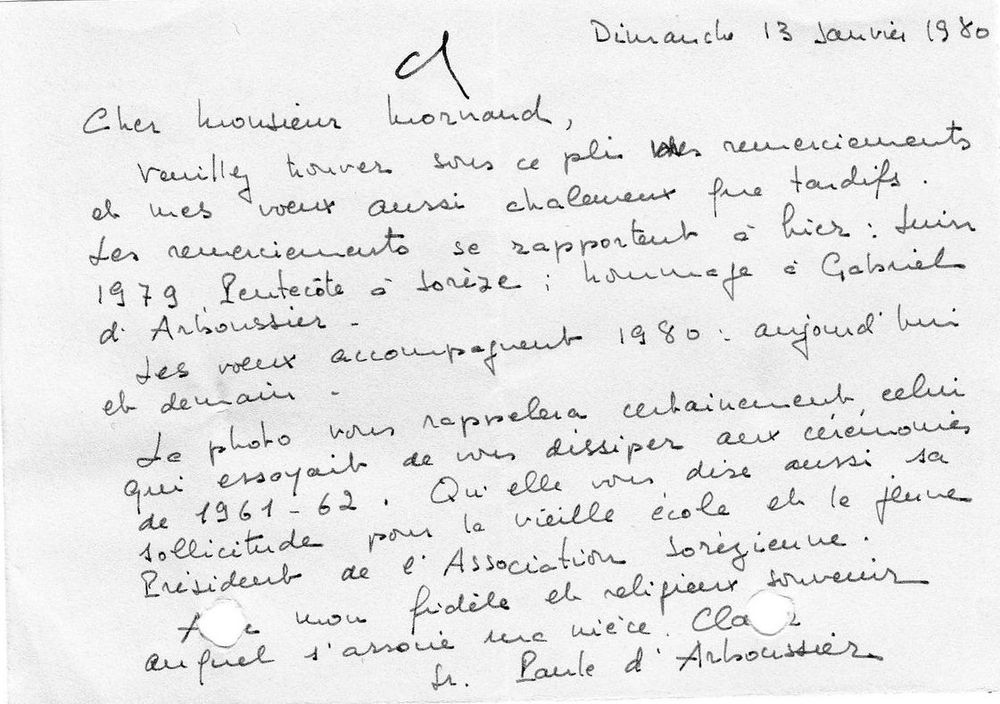 Dimanche 13 Janvier 1980
Cher Monsieur Mornaud,
Veuillez trouver sous ce pli mes remerciements
et mes voeux aussi chaleureux que tardifs.
Les remerciements se rapportent à hier : Juin
1979 Pentecôte à Sorèze ; hommage à Gabriel
d'Arboussier -
Les voeux accompagnent 1980 : aujourd'hui
et demain -
La photo vous rappelera certainement celui
qui essayait de vous dissiper aux cérémonies
de 1961-62. Qu'elle vous dise aussi sa
sollicitude pour la vieille école et le jeune
Président de l'Association Sorézienne.
mon fidèle et religieux souvenir
auquel s'associe ma nièce.
Sr. Paule d'Arboussier